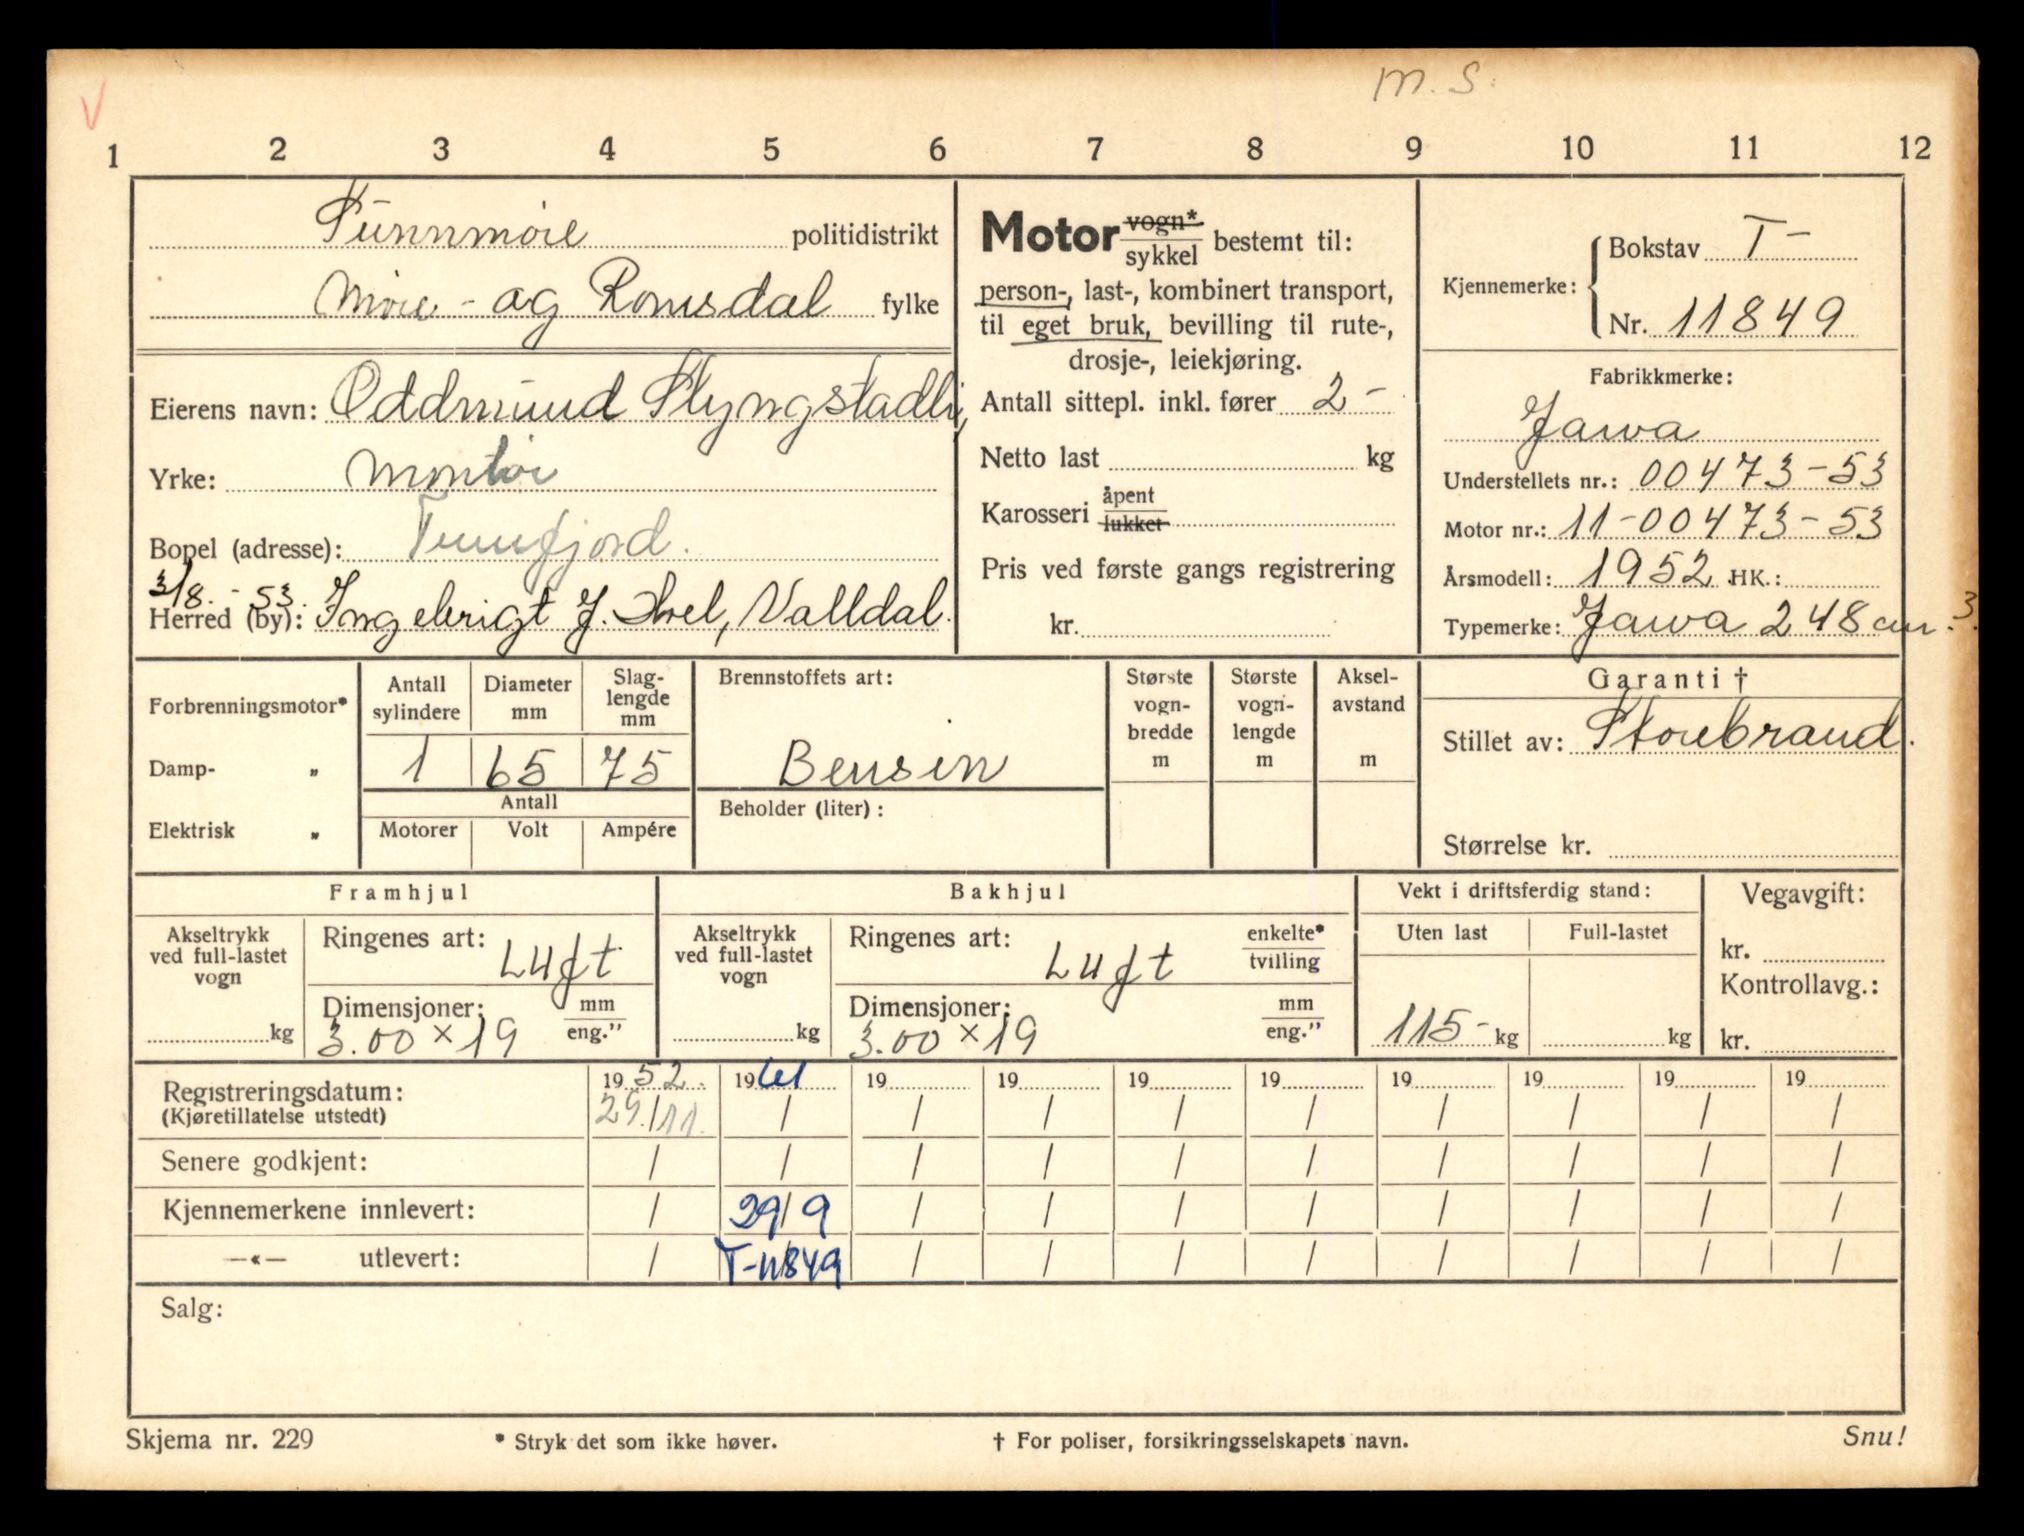 V
m. s.
1 2 3 4 5 6 7 8 9 10 11 12
Sunnmøre politidistrikt
Møre- og Romsdal fylke
Eierens navn: Oddmund Slyngstadli,
Yrke: Montør
Bopel (adresse): Tennfjord.
3/8. - 53.
Herred (by): Ingebrigt J. Åvel, Valldal.
Motor vogn* / sykkel bestemt til:
person-, last-, kombinert transport,
til eget bruk, bevilling til rute-,
drosje-, leiekjøring.
Antall sittepl. inkl. fører 2 -
Netto last kg
Karosseri åpent / lukket
Pris ved første gangs registrering
kr.
Kjennemerke: Bokstav T -
Nr. 11849
Fabrikkmerke:
Jawa
Understellets nr.: 00473-53
Motor nr.: 11-00473-53
Årsmodell: 1952 HK.:
Typemerke: Jawa 248 cm.3.
Forbrenningsmotor*
Damp- „
Elektrisk „
Antall sylindere Diameter mm Slag-lengde mm
1 65 75
Antall
Motorer Volt Ampére
Brennstoffets art:
Bensin
Beholder (liter):
Største vogn-bredde m
Største vogn-lengde m
Aksel-avstand m
Garanti †
Stillet av: Storebrand.
Størrelse kr.
Framhjul
Akseltrykk ved full-lastet vogn
kg
Ringenes art: Luft
Dimensjoner: mm / eng."
3.00 x 19
Bakhjul
Akseltrykk ved full-lastet vogn
kg
Ringenes art: Luft enkelte* / tvilling
Dimensjoner: mm / eng."
3.00 x 19
Vekt i driftsferdig stand:
Uten last Full-lastet
115- kg kg
Vegavgift:
kr.
Kontrollavg.:
kr.
Registreringsdatum: 1952. 1961 19 19 19 19 19 19 19 19
(Kjøretillatelse utstedt) 25./11. / / / / / / / / /
Senere godkjent: / / / / / / / / / /
Kjennemerkene innlevert: / 29/9 / / / / / / / /
—«— utlevert: / T-11849 / / / / / / / /
Salg:
Skjema nr. 229 * Stryk det som ikke høver. † For poliser, forsikringsselskapets navn. Snu!